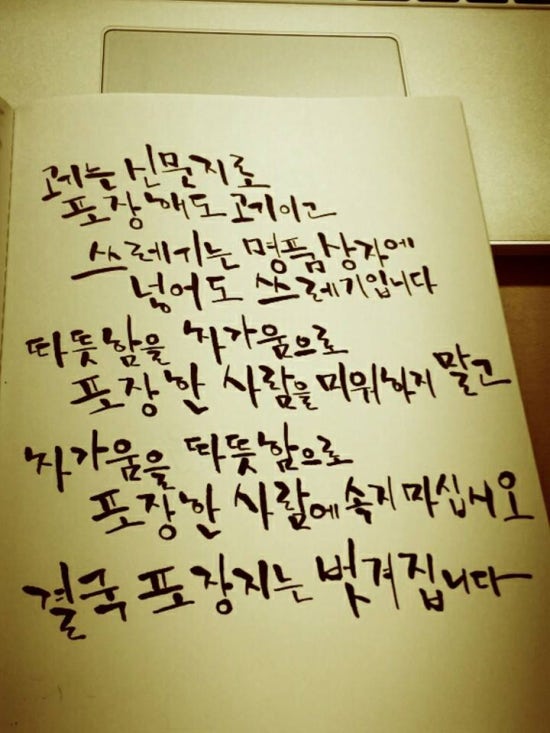 고기는 신문지로
포장해도 고기이고
쓰레기는 명품상자에
넣어도 쓰레기입니다
따뜻함을 차가움으로
포장한 사람을 미워하지 말고
차가움을 따뜻함으로
포장한 사람에 속지 마십시오
결국 포장지는 벗겨집니다